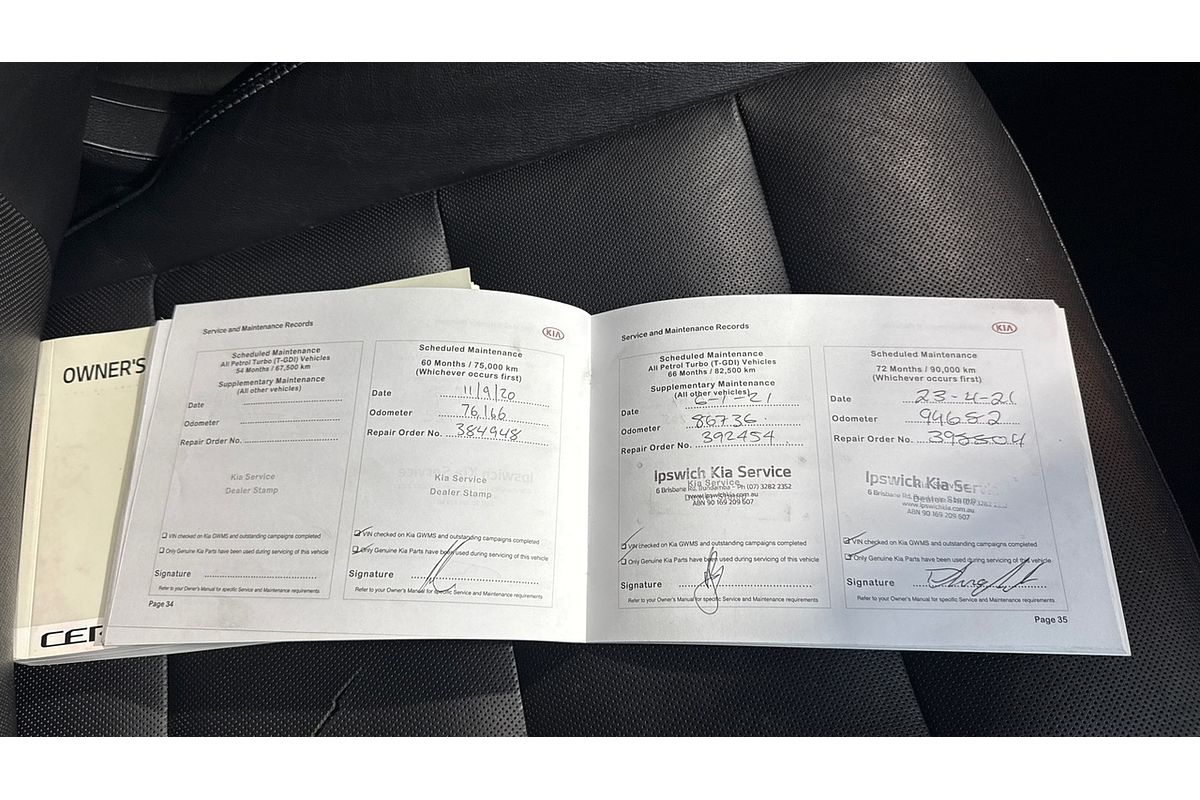 OWNER'S
CER
Service and Maintenance Records
KIA
Scheduled Maintenance
All Petrol Turbo (T-GDI) Vehicles
54 Months / 67,500 km
Supplementary Maintenance
(All other vehicles)
Date
Odometer
Repair Order No.
Kia Service
Dealer Stamp
VIN checked on Kia GWMS and outstanding campaigns completed
Only Genuine Kia Parts have been used during servicing of this vehicle
Signature
Refer to your Owner's Manual for specific Service and Maintenance requirements
Page 34
Scheduled Maintenance
60 Months / 75,000 km
(Whichever occurs first)
Date 11/9/20
Odometer 76,166
Repair Order No. 384948
Kia Service
Dealer Stamp
VIN checked on Kia GWMS and outstanding campaigns completed
Only Genuine Kia Parts have been used during servicing of this vehicle
Signature
Refer to your Owner's Manual for specific Service and Maintenance requirements
Service and Maintenance Records
KIA
Scheduled Maintenance
All Petrol Turbo (T-GDI) Vehicles
66 Months / 82,500 km
Supplementary Maintenance
(All other vehicles)
Date 6-1-21
Odometer 86736
Repair Order No. 392454
Ipswich Kia Service
Kia Service
6 Brisbane Rd, Bundamba - Ph (07) 3282 2352
www.ipswichkia.com.au
ABN 90 169 209 607
VIN checked on Kia GWMS and outstanding campaigns completed
Only Genuine Kia Parts have been used during servicing of this vehicle
Signature
Refer to your Owner's Manual for specific Service and Maintenance requirements
Scheduled Maintenance
72 Months / 90,000 km
(Whichever occurs first)
Date 23-4-21
Odometer 94652
Repair Order No. 398804
Ipswich Kia Service
Dealer Stamp
www.ipswichkia.com.au
ABN 90 169 209 607
VIN checked on Kia GWMS and outstanding campaigns completed
Only Genuine Kia Parts have been used during servicing of this vehicle
Signature
Refer to your Owner's Manual for specific Service and Maintenance requirements
Page 35